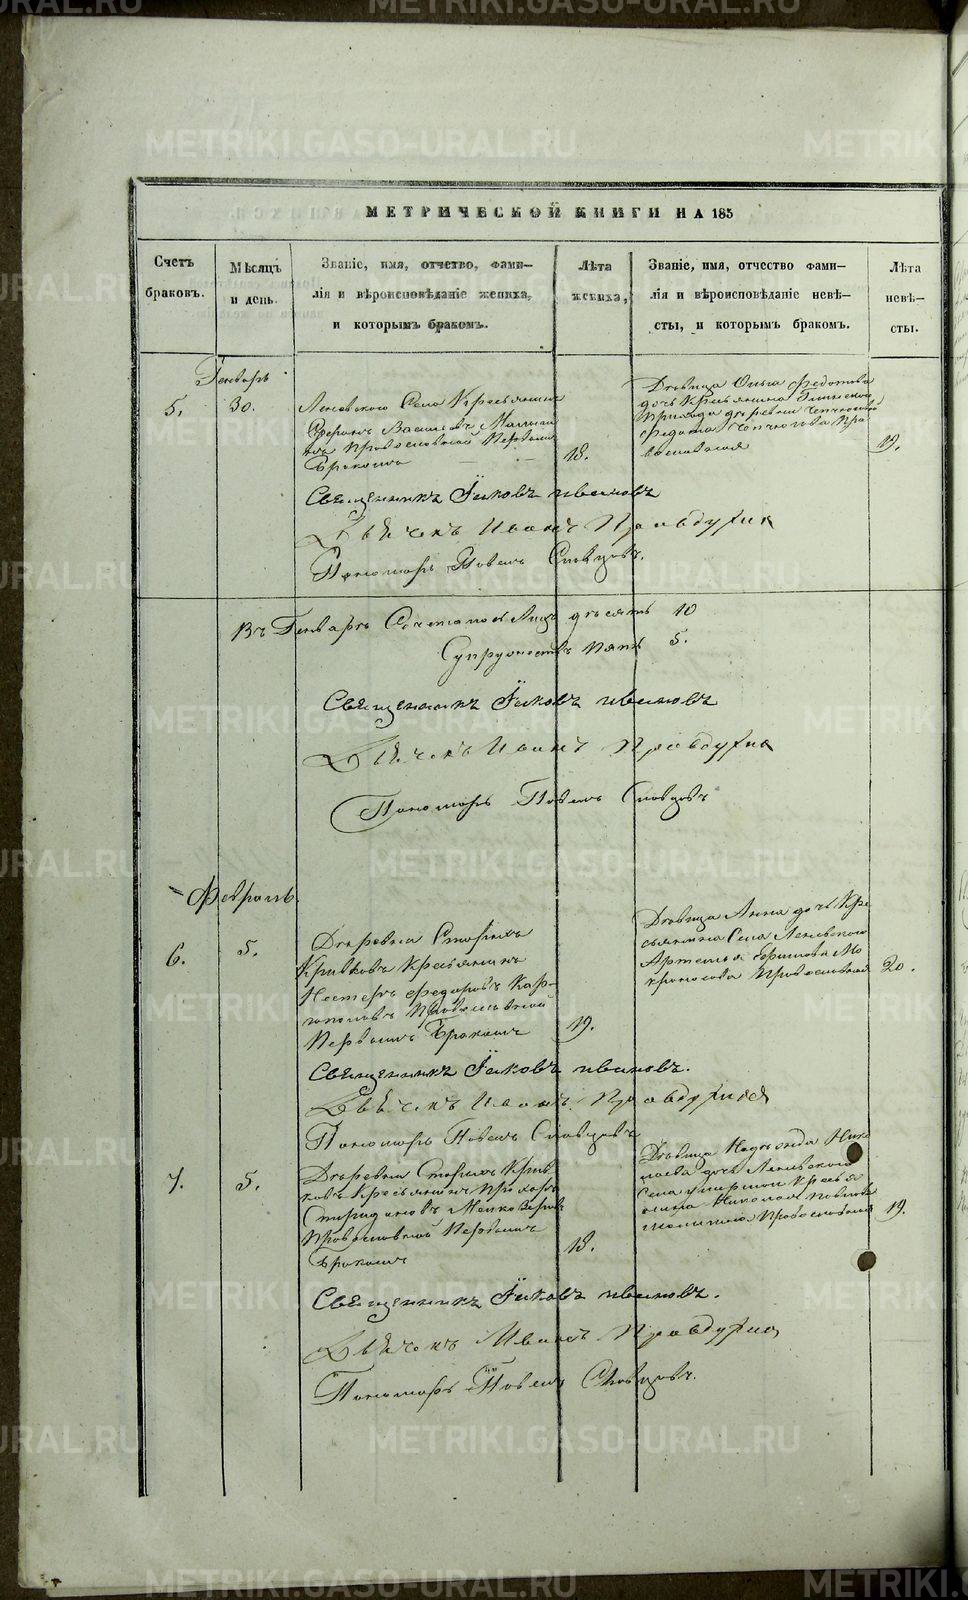 METRIKI.GASO-URAL.RU
МЕТРИЧЕСКОЙ КНИГИ НА 185
Счетъ браковъ.
Мѣсяцъ и день.
Званіе, имя, отчество, фами-
лія и вѣроисповѣданіе жениха,
и которымъ бракомъ.
Лѣта жениха,
Званіе, имя, отчество фами-
лія и вѣроисповѣданіе невѣ-
сты, и которымъ бракомъ.
Лѣта невѣ-
сты.
Генварь
5.
30.
Села Крестьянинъ
Василовъ
Православной Первымъ
Бракомъ
18.
Дѣвица Ольга Федотова
дочь Крестьянина
Прихода деревни
Федота Пра
вославная
19.
Священникъ Іяковъ Ивановъ
Дьячекъ Иванъ Правдухин
Пономарь Павелъ Словцовъ.
Въ Генварѣ Сочеталось Лицъ десять 10
Супружествъ пять 5.
Священникъ Іяковъ Ивановъ
Дьячекъ Иванъ Правдухин
Пономарь Павелъ Словцовъ
Февраль.
6.
5.
Деревни Старыхъ
Кривковъ Крестьянинъ
Нестеръ Федоровъ Кар-
пополовъ Православной
Первымъ Бракомъ
19.
Дѣвица Анна дочь Кре
стьянина Села
Артемья
Православная
20.
Священникъ Іяковъ Ивановъ.
Дьячекъ Иванъ Правдухин
Пономарь Павелъ Словцовъ
7.
5.
Деревни Старыхъ Крив
ковъ Крестьянинъ Прохоръ
Спиридоновъ
Православной Первымъ
Бракомъ
18.
Дѣвица Надежда Нико
лаева дочь
Села умершаго Кресть
янина Николая Павлова
Православная
19.
Священникъ Іяковъ Ивановъ.
Дьячекъ Иванъ Правдухин
Пономарь Павелъ Словцовъ.